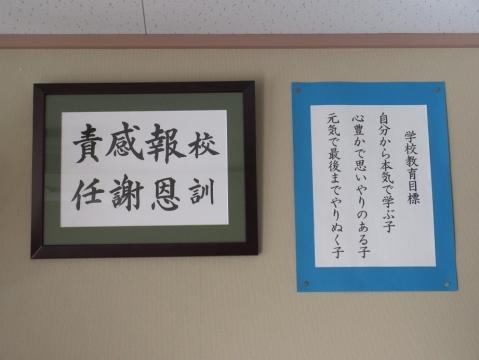 校訓
報恩
感謝
責任
学校教育目標
自分から本気で学ぶ子
心豊かで思いやりのある子
元気で最後までやりぬく子